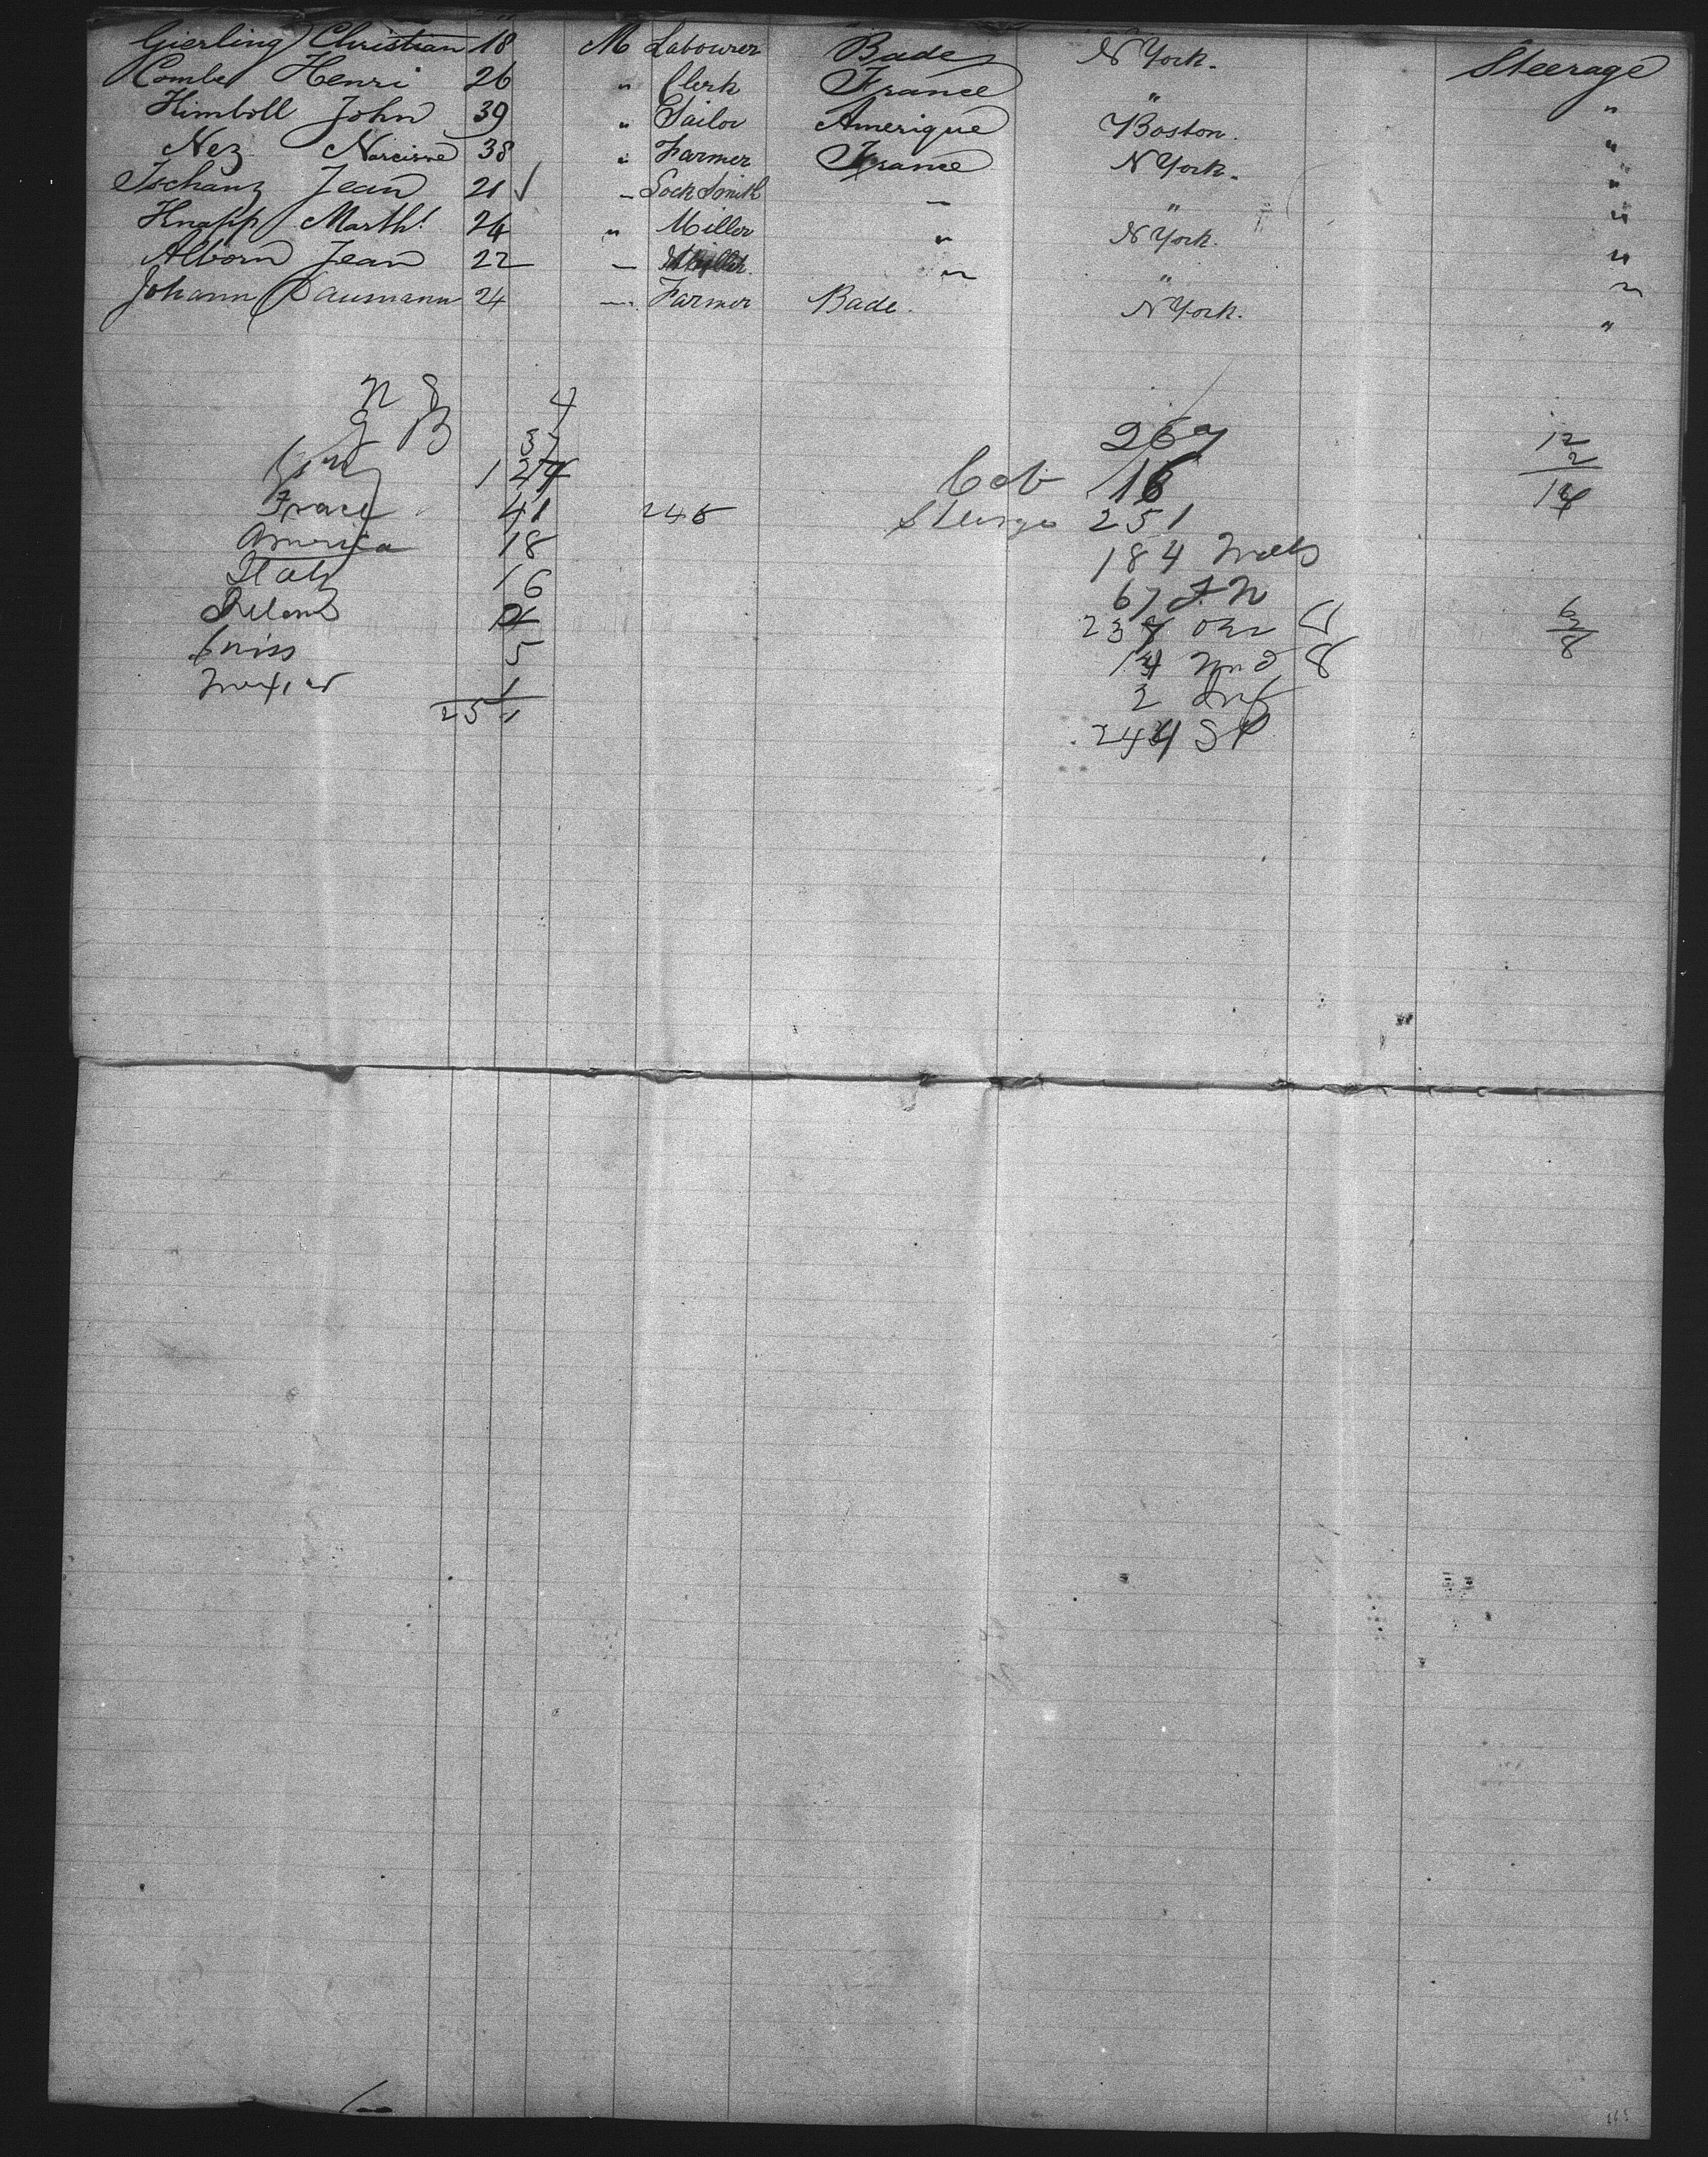 Gierling Christian 18 M Labourer Bade N York. Steerage
Combe Henri 26 " Clerk France " "
Himboll John 39 " Sailor Amerique Boston. "
Nez Narcisse 38 " Farmer France N York. "
Tschanz Jean 21 √ " Lock Smith " " "
Knapp Math! 24 " Miller " N York. "
Alborn Jean 22 " " " "
Johann Baumann 24 " Farmer Bade. N York. "
4
g B 37 267 12
127 Cab 16 2
France 41 248 251 14
America 18 184
Italy 16 67
Ireland 237 6
Swiss 5 14 8 2
Mexico 1 2 8
251 244